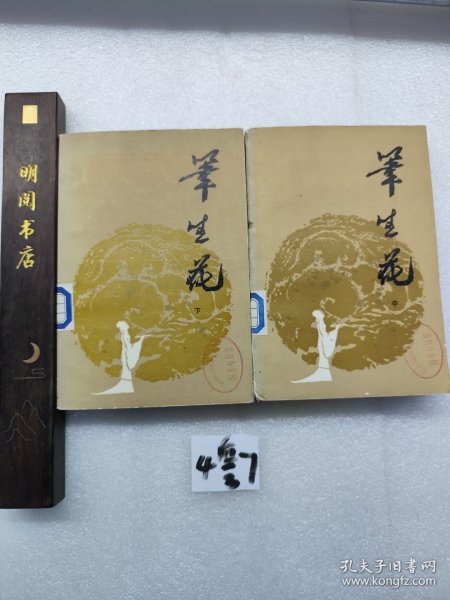 明阅书店
筆生花
下
筆生花
中
孔夫子旧书网
www.kongfz.com